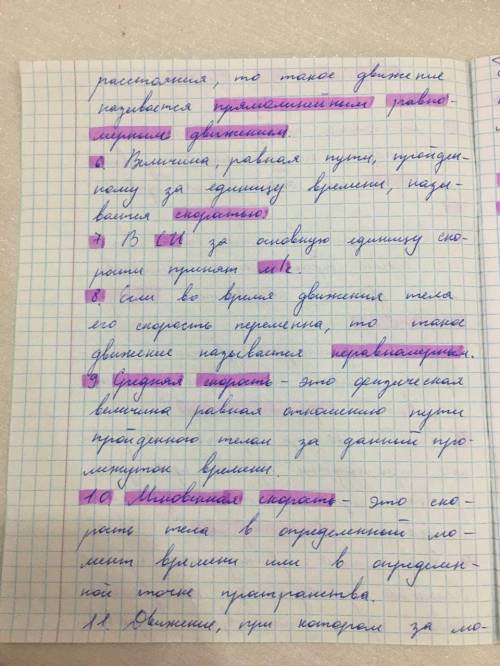 расстояния, то такое движение
называется прямолинейным равно-
мерным движением.
6 Величина, равная пути, пройден-
ному за единицу времени, назы-
вается скоростью.
7 В СИ за основную единицу ско-
рости принят м/с.
8 Если во время движения тела
его скорость переменна, то такое
движение называется неравномерным.
9 Средняя скорость - это физическая
величина равная отношению пути
пройденного телом за данный про-
межуток времени.
10 Мгновенная скорость - это ско-
рость тела в определенный мо-
мент времени или в определен-
ной точке пространства.
11 Движение, при котором за мо-